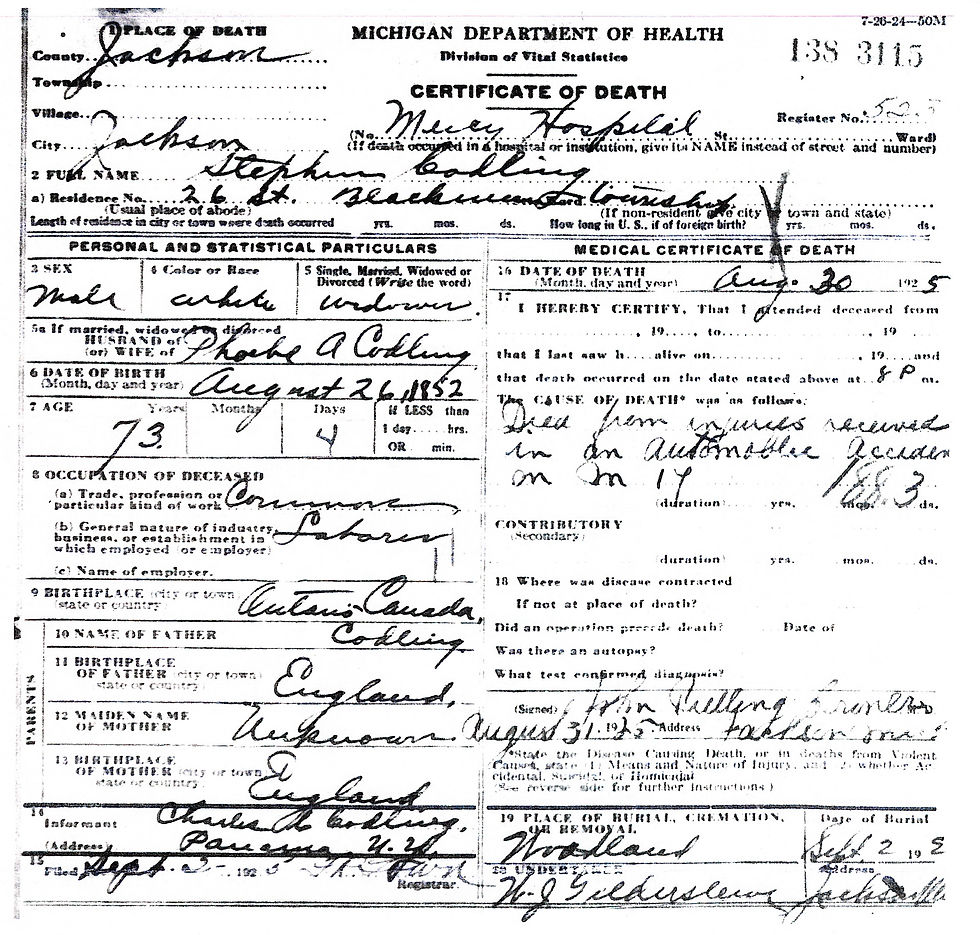 7-26-24—50M
1 PLACE OF DEATH
MICHIGAN DEPARTMENT OF HEALTH
138 3115
County Jackson
Division of Vital Statistics
Township
CERTIFICATE OF DEATH
Village
Register No. 52
City Jackson
(No. Mercy Hospital St. Ward)
(If death occurred in a hospital or institution, give its NAME instead of street and number)
2 FULL NAME Stephen Codling
a) Residence No. 26 St. Blackman Township
(Usual place of abode)
(If non-resident give city or town and state)
Length of residence in city or town where death occurred yrs. mos. ds. How long in U. S., if of foreign birth? yrs. mos. ds.
PERSONAL AND STATISTICAL PARTICULARS
3 SEX
4 Color or Race
5 Single, Married, Widowed or
Divorced (Write the word)
Male white widower
5a If married, widowed or divorced
HUSBAND of
(or) WIFE of Phoebe A Codling
6 DATE OF BIRTH
(Month, day and year) August 26, 1852
7 AGE Years Months Days If LESS than
1 day hrs.
OR min.
73 4
8 OCCUPATION OF DECEASED
(a) Trade, profession or
particular kind of work Common
(b) General nature of industry,
business, or establishment in
which employed (or employer) Laborer
(c) Name of employer.
9 BIRTHPLACE (city or town
state or country) Ontario Canada,
PARENTS
10 NAME OF FATHER Codling
11 BIRTHPLACE
OF FATHER (city or town)
state or country) England,
12 MAIDEN NAME
OF MOTHER Unknown
13 BIRTHPLACE
OF MOTHER (city or town
state or country) England
14
Informant Charles Codling.
(Address) Panama N.Y.
15
Filed Sept. 2- 192 5
Registrar.
MEDICAL CERTIFICATE OF DEATH
16 DATE OF DEATH
(Month, day and year) Aug. 30 192 5
17
I HEREBY CERTIFY, That I attended deceased from
, 19 , to , 19
that I last saw h alive on , 19 and
that death occurred on the date stated above at 8 P m.
The CAUSE OF DEATH* was as follows:
Died from injuries received
in an Automobile Acciden
on M 14
188.3
(duration) yrs. mos. ds.
CONTRIBUTORY
(Secondary)
(duration) yrs. mos. ds.
18 Where was disease contracted
If not at place of death?
Did an operation precede death? Date of
Was there an autopsy?
What test confirmed diagnosis?
(Signed) John Coroner
August 31 1925 Address Jackson Mich
*State the Disease Causing Death, or in deaths from Violent
Causes, state 1) Means and Nature of Injury, and 2) whether Ac
cidental, Suicidal, or Homicidal
(See reverse side for further instructions)
19 PLACE OF BURIAL, CREMATION,
OR REMOVAL
Date of Burial
Woodland Sept 2 19
20 UNDERTAKER
Address
Jackson